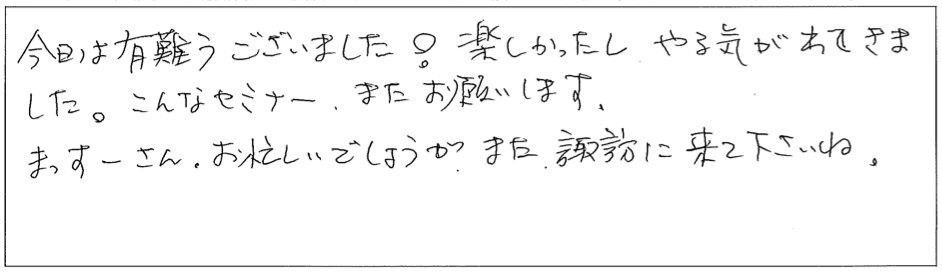 今日は有難うございました！楽しかったし やる気がわてきま
した。こんなセミナー、またお願いします。
まっすーさん、お忙しいでしょうが また 諏訪に来て下さいね。